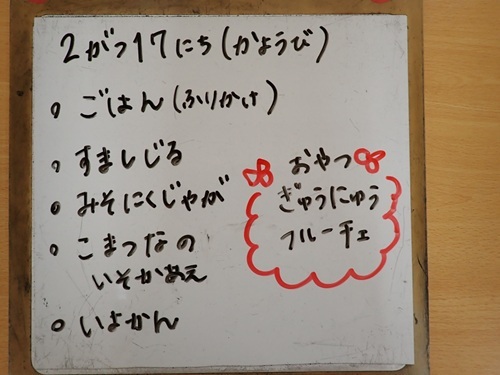 2がつ17にち(かようび)
ごはん(ふりかけ)
すましじる
みそにくじゃが
こまつなの
いそかあえ
いよかん
おやつ
ぎゅうにゅう
フルーチェ